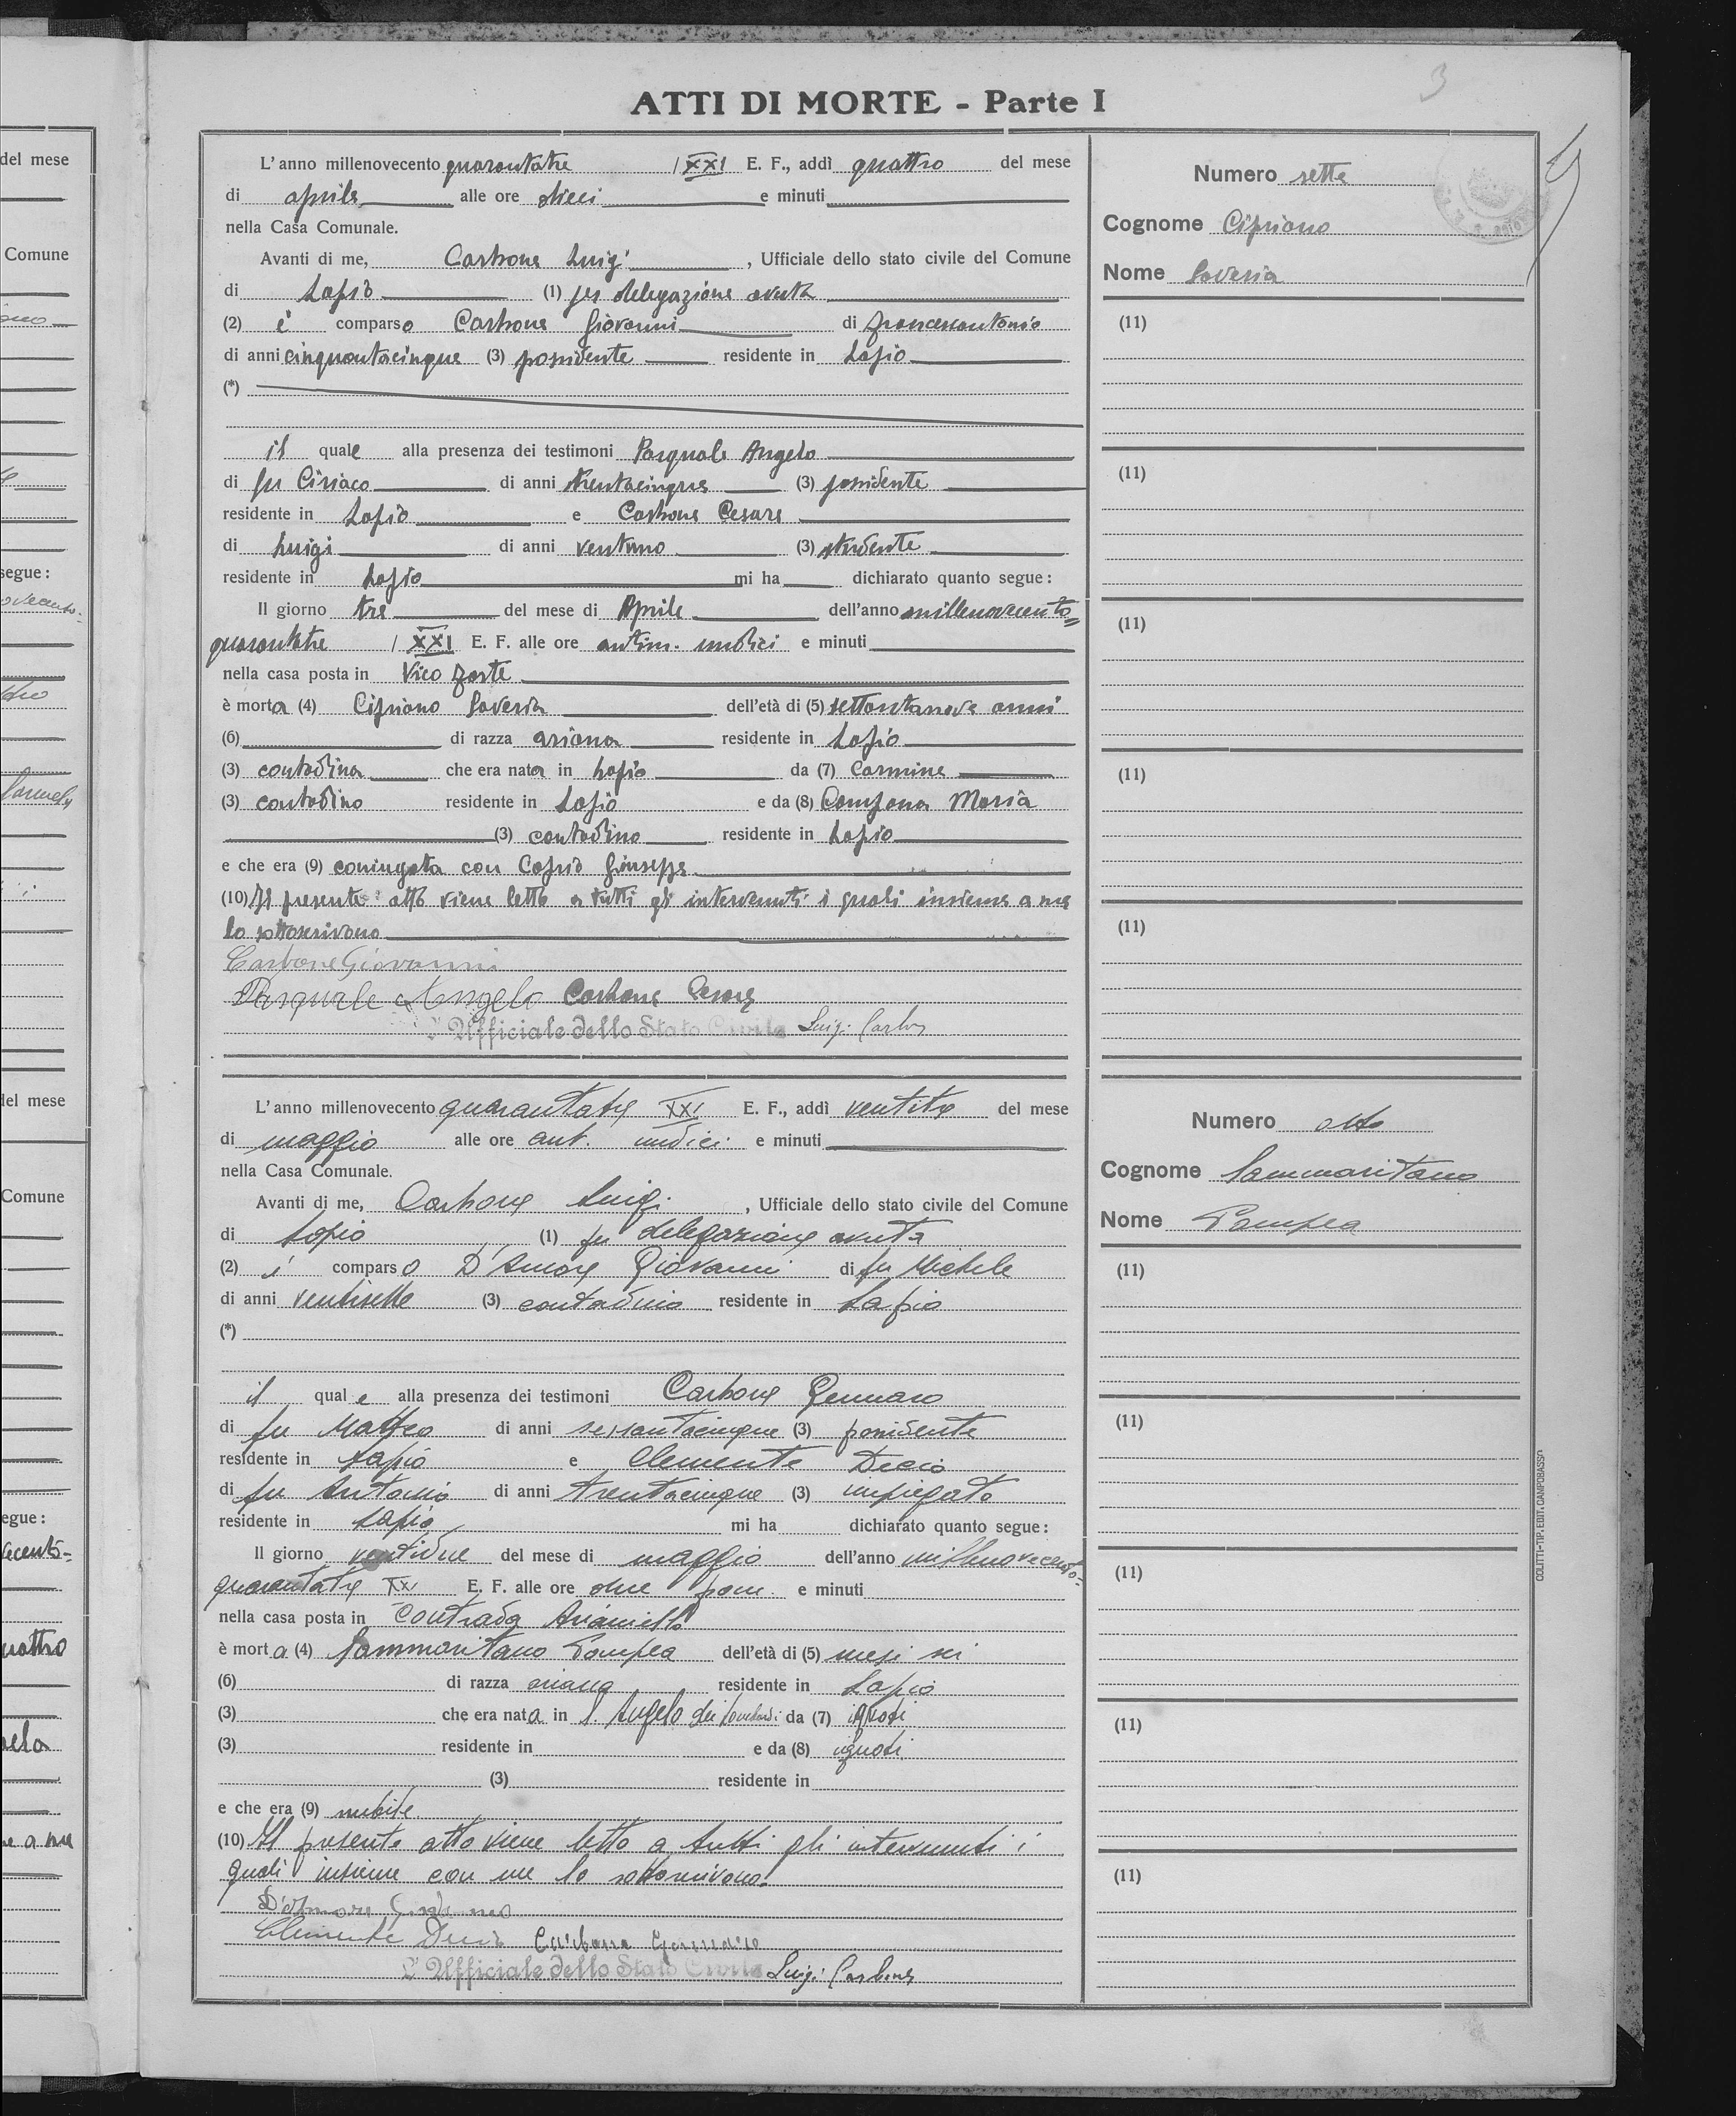 3
ATTI DI MORTE - Parte I
L'anno millenovecento quarantatre / XXI E. F., addì quattro del mese
di aprile alle ore dieci e minuti
nella Casa Comunale.
Avanti di me, Carbone Luigi, Ufficiale dello stato civile del Comune
di Lapio (1) per delegazione avuta
(2) è comparso Carbone Giovanni di Francescantonio
di anni cinquantacinque (3) possidente residente in Lapio
(*)
il quale alla presenza dei testimoni Pasquale Angelo
di fu Ciriaco di anni trentacinque (3) possidente
residente in Lapio e Carbone Cesare
di Luigi di anni ventuno (3) studente
residente in Lapio mi ha dichiarato quanto segue:
Il giorno tre del mese di Aprile dell'anno millenovecento=
quarantatre / XXI E. F. alle ore antim. undici e minuti
nella casa posta in Vico Forte
è morta (4) Cipriano Saveria dell'età di (5) settantanove anni
(6) di razza ariana residente in Lapio
(3) contadina che era nata in Lapio da (7) Carmine
(3) contadino residente in Lapio e da (8) Campana Maria
(3) contadina residente in Lapio
e che era (9) coniugata con Caprio Giuseppe
(10) Il presente atto viene letto a tutti gli intervenuti i quali insieme a me
lo sottoscrivono
Carbone Giovanni
Pasquale Angelo Carbone Cesare
L'Ufficiale dello Stato Civile Luigi Carbone
Numero sette
Cognome Cipriano
Nome Saveria
(11)
(11)
(11)
(11)
(11)
L'anno millenovecento quarantatre XXI E. F., addì ventitre del mese
di maggio alle ore ant. undici e minuti
nella Casa Comunale.
Avanti di me, Carbone Luigi, Ufficiale dello stato civile del Comune
di Lapio (1) per delegazione avuta
(2) è comparso D'Amore Giovanni di fu Michele
di anni ventisette (3) contadino residente in Lapio
(*)
il quale alla presenza dei testimoni Carbone Gennaro
di fu Matteo di anni sessantacinque (3) possidente
residente in Lapio e Clemente Decio
di fu Antonio di anni trentacinque (3) impiegato
residente in Lapio mi ha dichiarato quanto segue:
Il giorno ventidue del mese di maggio dell'anno millenovecento=
quarantatre XXI E. F. alle ore due pom. e minuti
nella casa posta in Contrada Arianiello
è morta (4) Sammaritano Pompea dell'età di (5) mesi sei
(6) di razza ariana residente in Lapio
(3) che era nata in S. Angelo dei Lombardi da (7) ignoti
(3) residente in e da (8) ignoti
(3) residente in
e che era (9) nubile
(10) Il presente atto viene letto a tutti gli intervenuti i
quali insieme con me lo sottoscrivono.
D'Amore
Clemente Decio Carbone Gennaro
L'Ufficiale dello Stato Civile Luigi Carbone
Numero otto
Cognome Sammaritano
Nome Pompea
(11)
(11)
(11)
(11)
(11)
COLITTI-TIP. EDIT. CAMPOBASSO
del mese
Comune
segue:
del mese
Comune
segue: